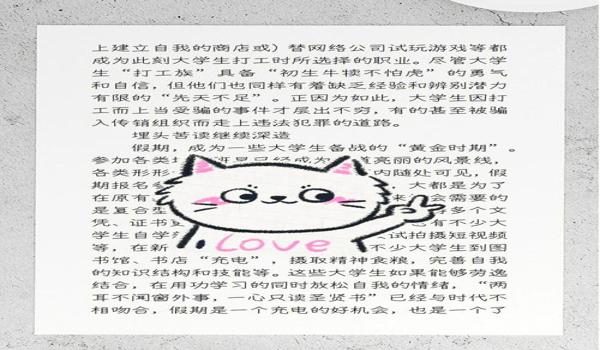 上建立自我的商店或）替网络公司试玩游戏等都
成为此刻大学生打工时所选择的职业。尽管大学
生“打工族”具备“初生牛犊不怕虎”的勇气
和自信，但他们也同样有着缺乏经验和辨别潜力
有限的“先天不足”。正因为如此，大学生因打
工而上当受骗的事件才层出不穷，有的甚至被骗
入传销组织而走上违法犯罪的道路。
埋头苦读继续深造
假期，成为一些大学生备战的“黄金时期”。
参加各类 班早已经成为 道亮丽的风景线，
各类形形 内随处可见，假
期报名 ，大都是为了
在原有 会需要的
是复合型 多个文
凭、证书 也有不少大
学生自学 试拍摄短视频
等，在新 不少大学生到图
Love
书馆、书店“充电”，摄取精神食粮，完善自我
的知识结构和技能等。这些大学生如果能够劳逸
结合，在用功学习的同时放松自我的情绪，“两
耳不闻窗外事，一心只读圣贤书”已经与时代不
相吻合，假期是一个充电的好机会，也是一个了